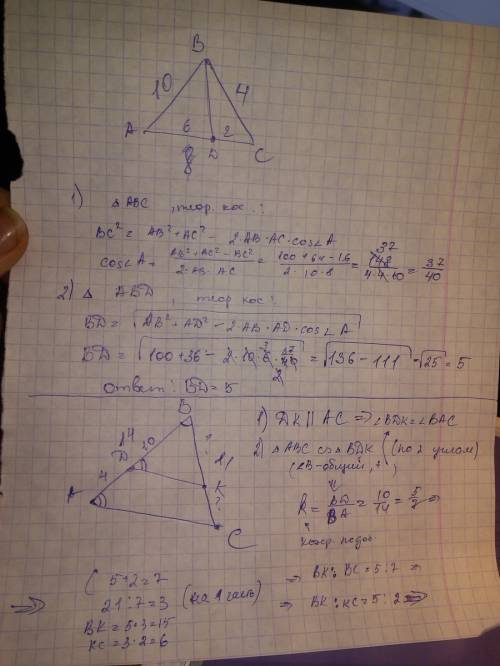 B
10
4
A
6
2
D
C
8
1) △ ABC , теор. кос.:
BC² = AB² + AC² - 2·AB·AC·cos∠A
cos∠A = (AB² + AC² - BC²)/(2·AB·AC) = (100+64-16)/(2·10·8) = 148/(4·4·10) = 37/40
2) △ ABD , теор кос:
BD = √(AB² + AD² - 2·AB·AD·cos∠A)
BD = √(100+36 - 2·10·6·37/40) = √(136-111) = √25 = 5
Ответ: BD = 5
B
14
10
?
D
21
4
K
A
?
C
1) DK ∥ AC ⇒ ∠BDK = ∠BAC
2) △ABC ∽ △BDK (по 2 углам)
(∠B-общий, ↑)
k = BD/BA = 10/14 = 5/7 ⇒
коэф. подоб.
⇒ BK : BC = 5 : 7 ⇒
⇒ BK : KC = 5 : 2 ⇒
⇒ 5+2=7
21:7=3 (на 1 часть)
BK = 5·3=15
KC = 3·2=6